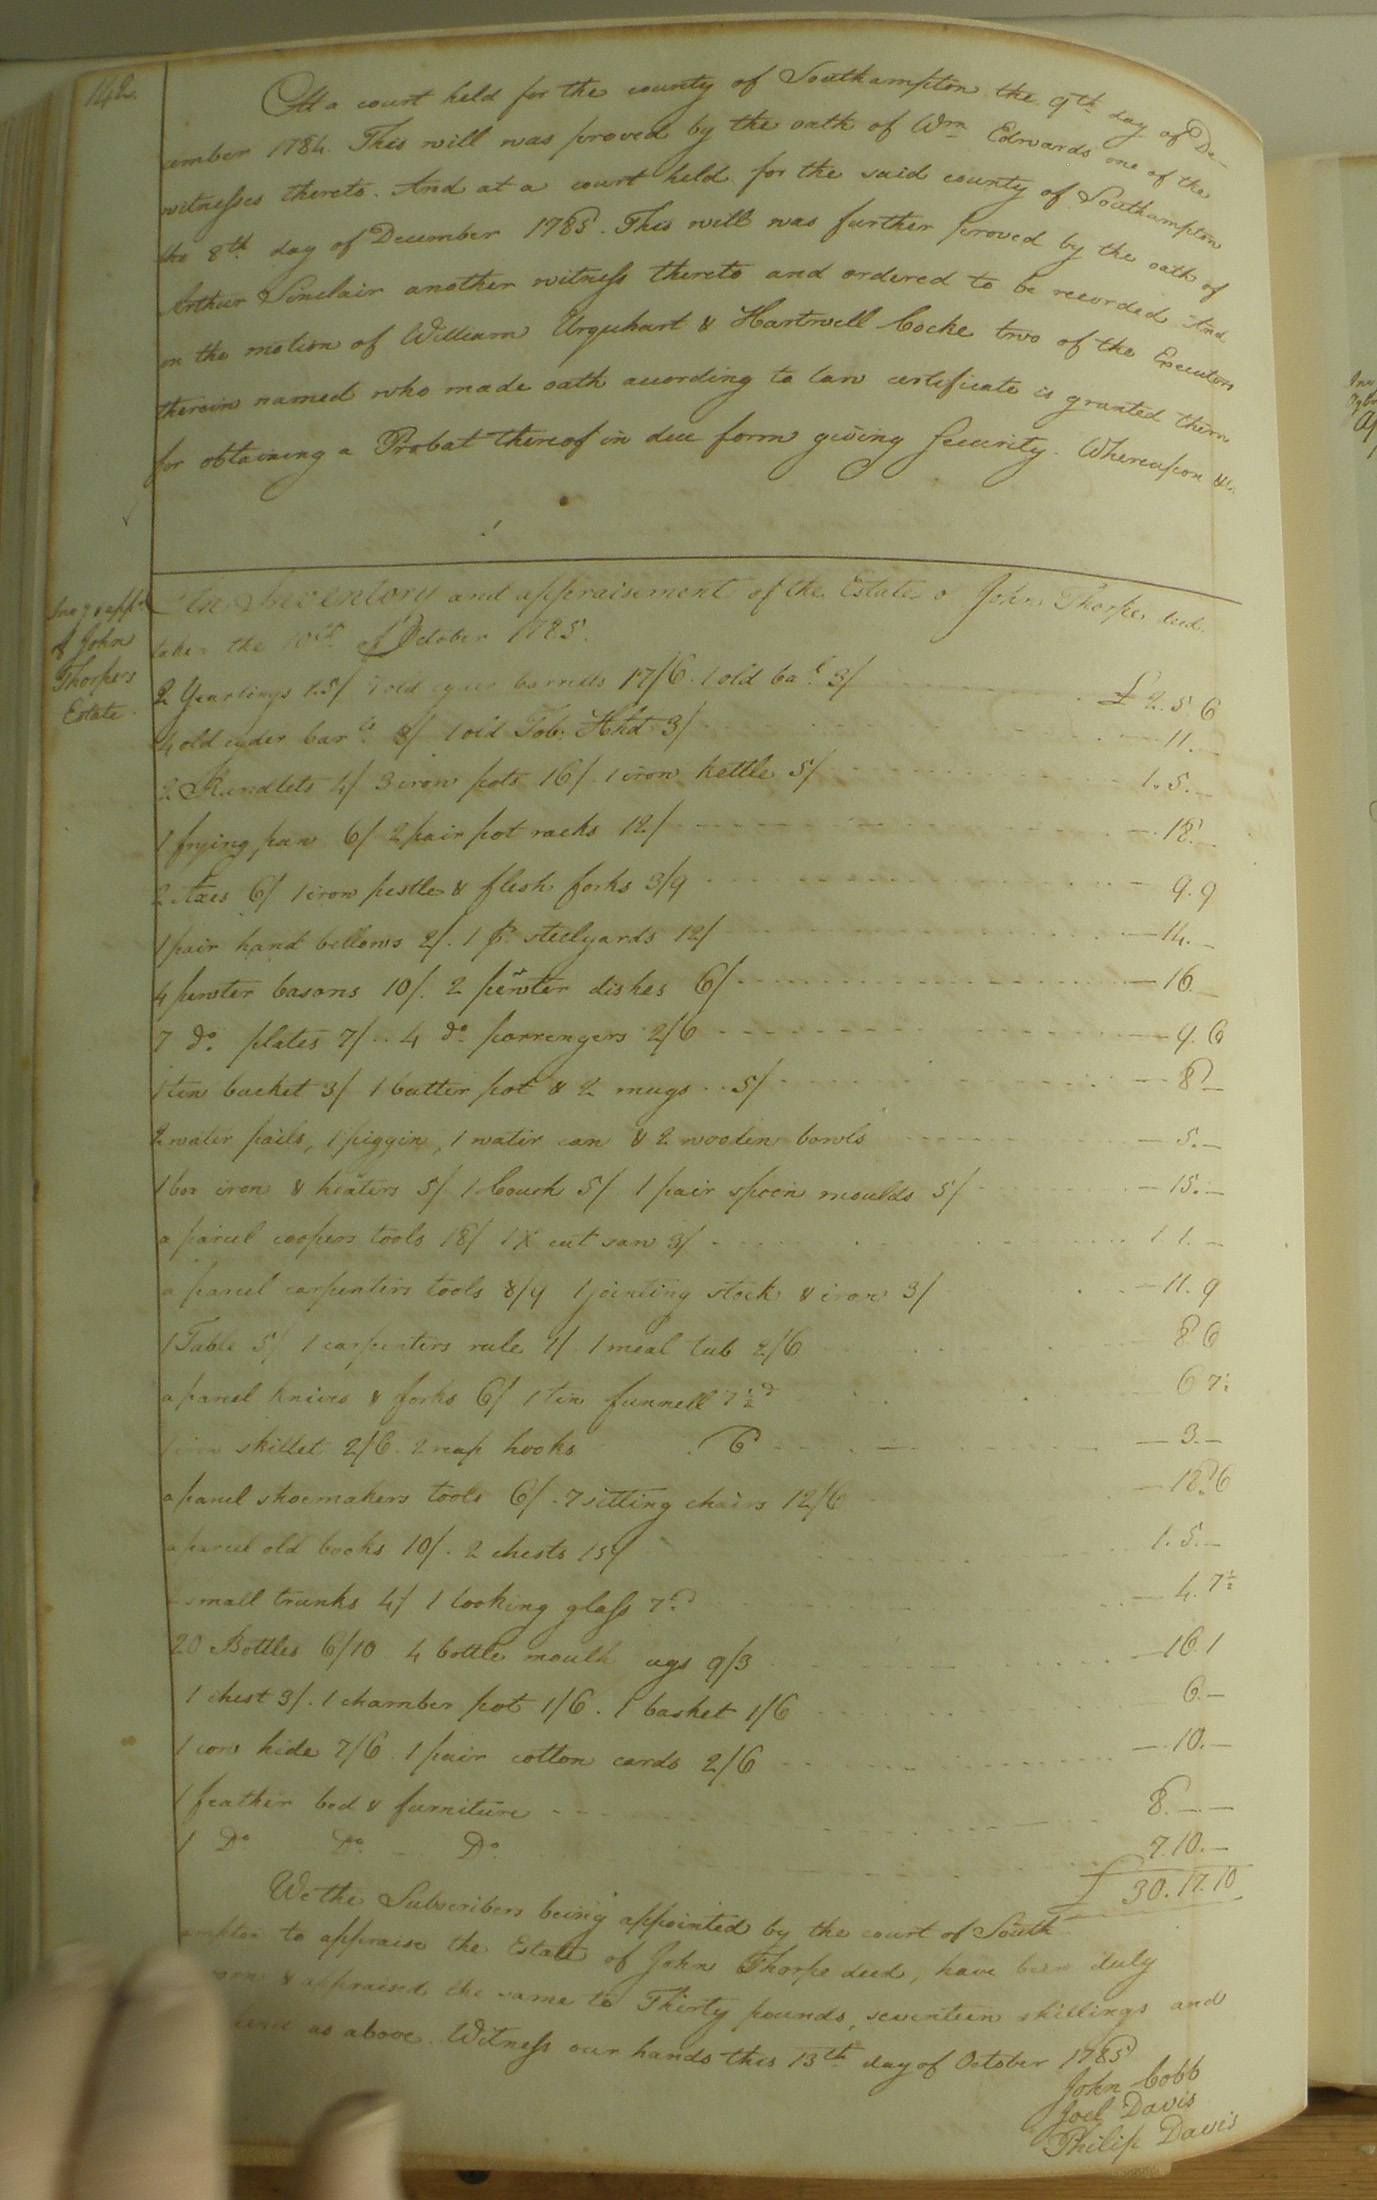 142.
At a court held for the county of Southampton the 9th day of De-
cember 1784. This will was proved by the oath of Wm Edwards one of the
witnesses thereto. And at a court held for the said county of Southampton
the 8th day of December 1785. This will was further proved by the oath of
Arthur Sinclair another witness thereto and ordered to be recorded And
on the motion of William Urquhart & Hartwell Cocke two of the Executors
therein named who made oath according to law certificate is granted them
for obtaining a Probat thereof in due form giving Security. Whereupon &c.
Invy & appt
of John
Thorpes
Estate.
An Inventory and appraisement of the Estate of John Thorpe decd.
taken the 10th of October 1785.
2 Yearlings 25/ 7 old cyder barrells 17/6. 1 old bal. 3/ £ 2.5.6
4 old cyder barls. 8/ 1 old Tob. Hhd 3/ 11.—
2 Rundlets 4/ 3 iron pots 16/. 1 iron kettle 5/ 1.5.—
1 frying pan 6/ 2 pair pot racks 12/ 18.—
2 Axes 6/ 1 iron pestle & flesh forks 3/9 9.9
1 pair hand bellows 2/. 1 pr. steelyards 12/ 14.—
4 pewter basons 10/. 2 pewter dishes 6/ 16.—
7 do. plates 7/.. 4 do. porrengers 2/6 9.6
1 tin bucket 3/ 1 butter pot & 2 mugs.. 5/ 8—
2 water pails, 1 piggin, 1 water can & 2 wooden bowls 5.—
1 box iron & heaters 5/ 1 Couch 5/ 1 pair spoon moulds 5/ 15.—
a parcel coopers tools 18/ 1 X cut saw 3/ 1.1.—
a parcel carpenters tools 8/9 1 jointing stock & iron 3/ 11.9
1 Table 5/ 1 carpenters rule 1/. 1 meal tub 2/6 8 6
a parcel knives & forks 6/ 1 tin funnell 7½d 6 7½
1 iron skillet 2/6. 2 reap hooks 6 3.—
a parcel shoemakers tools 6/. 7 sitting chairs 12/6 18.6
a parcel old books 10/. 2 chests 15/ 1.5.—
small trunks 4/ 1 looking glass 7d 4.7½
20 Bottles 6/10 4 bottle mouth ugs 9/3 16.1
1 chest 3/. 1 chamber pot 1/6. 1 basket 1/6 6.—
1 cow hide 7/6. 1 pair cotton cards 2/6 10.—
1 feather bed & furniture 8.——
1 Do Do. Do. 7.10.—
£ 30.17.10
We the Subscribers being appointed by the court of South
ampton to appraise the Estate of John Thorpe decd, have been duly
sworn & appraised the same to Thirty pounds, seventeen shillings and
pence as above. Witness our hands this 13th day of October 1785
John Cobb
Joel Davis
Philip Davis